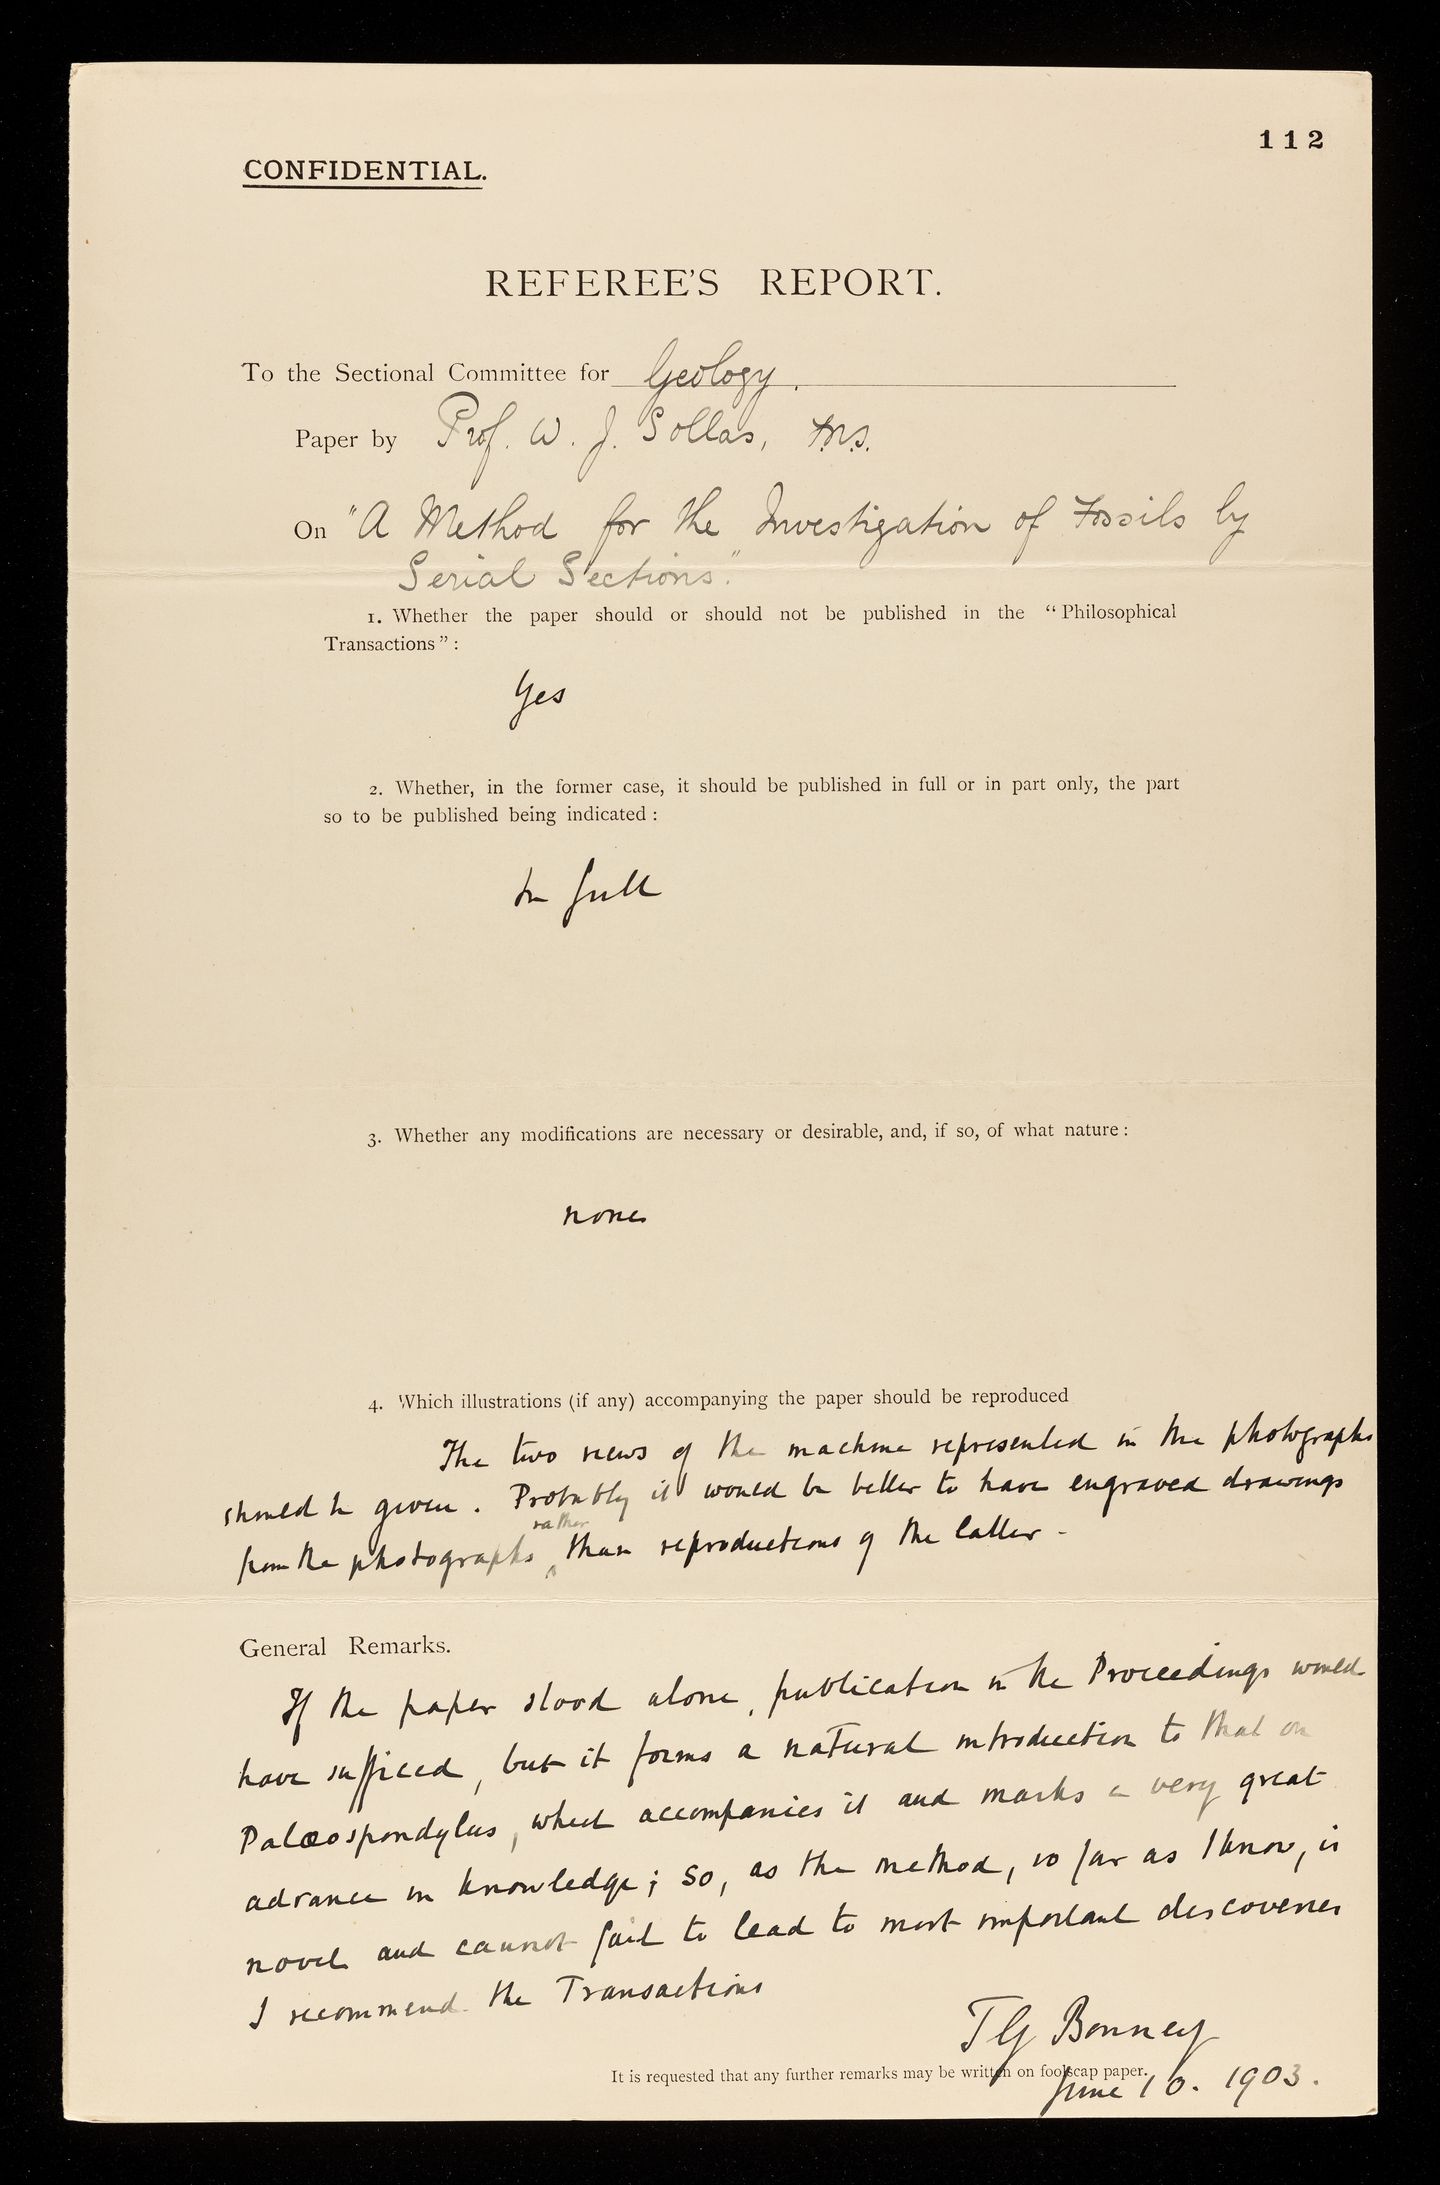 112
CONFIDENTIAL.
REFEREE'S REPORT.
To the Sectional Committee for Geology.
Paper by Prof. W. J. Sollas, F.R.S.
On "A Method for the Investigation of Fossils by
Serial Sections."
1. Whether the paper should or should not be published in the "Philosophical
Transactions":
Yes
2. Whether, in the former case, it should be published in full or in part only, the part
so to be published being indicated:
In full
3. Whether any modifications are necessary or desirable, and, if so, of what nature:
none
4. Which illustrations (if any) accompanying the paper should be reproduced
The two views of the machine represented in the photographs
should be given. Probably it would be better to have engraved drawings
rather
from the photographs ‸ than reproductions of the latter -
General Remarks.
If the paper stood alone, publication in the Proceedings would
have sufficed, but it forms a natural introduction to that on
Palæospondylus, which accompanies it and marks a very great
advance in knowledge; so, as the method, so far as I know, is
novel and cannot fail to lead to most important discoveries
I recommend the Transactions
T G Bonney
It is requested that any further remarks may be written on foolscap paper.
June 10. 1903.